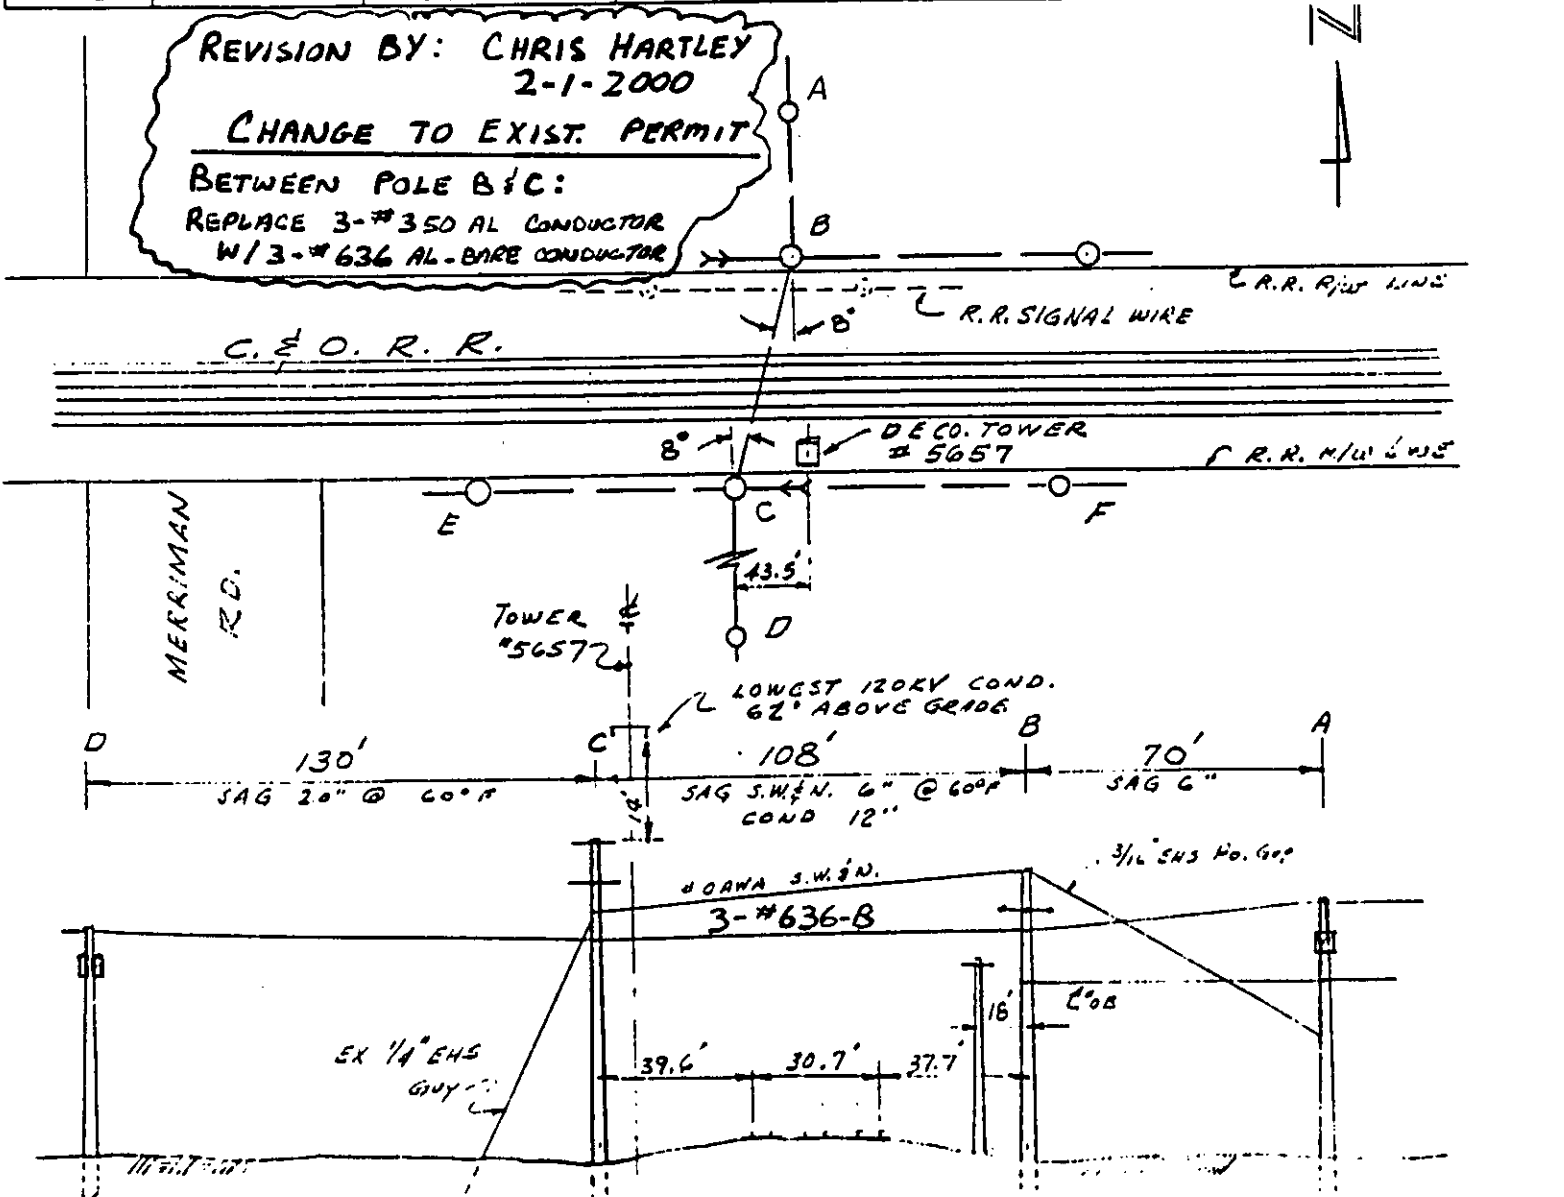 REVISION BY: CHRIS HARTLEY
2-1-2000
CHANGE TO EXIST. PERMIT
BETWEEN POLE B & C:
REPLACE 3-#350 AL CONDUCTOR
W/3-#636 AL-BARE CONDUCTOR
N
A
B
R.R. R/W LINE
R.R. SIGNAL WIRE
8°
C. & O. R. R.
8°
DECO. TOWER
# 5657
R.R. R/W LINE
E
C
F
MERRIMAN
RD.
43.5'
D
TOWER ℄
#5657
LOWEST 120KV COND.
62' ABOVE GRADE
D
C
B
A
130'
108'
70'
SAG 20" @ 60°F
14'
SAG S.W.&N. 6" @ 60°F
COND 12"
SAG 6"
3/16" EHS
S.W.&N.
3-#636-B
18'
EX 1/4" EHS
GUY
39.6'
30.7'
37.7'